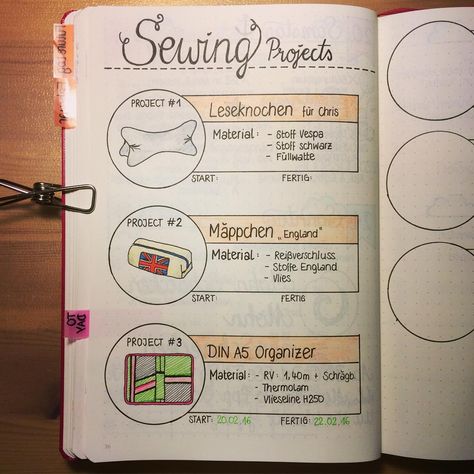 Sewing Projects
PROJECT #1
Leseknochen für Chris
Material: - Stoff Vespa
- Stoff schwarz
- Füllwatte
START: FERTIG:
PROJECT #2
Mäppchen „England"
Material: - Reißverschluss
- Stoffe England
- Vlies
START: FERTIG
PROJECT #3
DIN A5 Organizer
Material: - RV: 1,40m + Schrägb.
- Thermolam
- Vlieseline H250
START: 20.02.16 FERTIG: 22.02.16